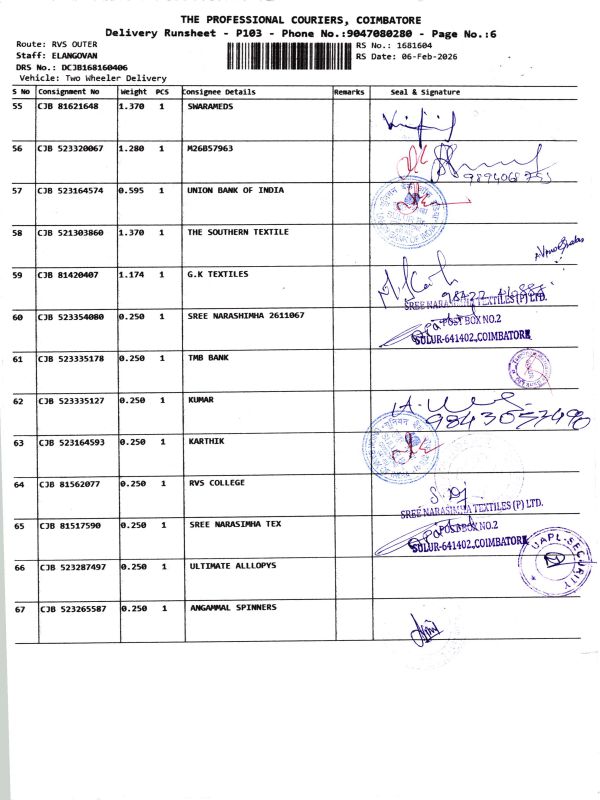 THE PROFESSIONAL COURIERS, COIMBATORE
Delivery Runsheet - P103 - Phone No.:9047080280 - Page No.:6
Route: RVS OUTER RS No.: 1681604
Staff: ELANGOVAN RS Date: 06-Feb-2026
DRS No.: DCJB168160406
Vehicle: Two Wheeler Delivery
S No Consignment No Weight PCS Consignee Details Remarks Seal & Signature
55 CJB 81621648 1.370 1 SWARAMEDS
56 CJB 523320067 1.280 1 M26B57963
9894068755
57 CJB 523164574 0.595 1 UNION BANK OF INDIA
58 CJB 521303860 1.370 1 THE SOUTHERN TEXTILE
59 CJB 81420407 1.174 1 G.K TEXTILES
SREE NARASIMHA TEXTILES (P) LTD.
60 CJB 523354080 0.250 1 SREE NARASHIMHA 2611067
POST BOX NO.2
SULUR-641402,COIMBATORE
61 CJB 523335178 0.250 1 TMB BANK
62 CJB 523335127 0.250 1 KUMAR
9843057490
63 CJB 523164593 0.250 1 KARTHIK
64 CJB 81562077 0.250 1 RVS COLLEGE
SREE NARASIMHA TEXTILES (P) LTD.
65 CJB 81517590 0.250 1 SREE NARASIMHA TEX
POST BOX NO.2
SULUR-641402,COIMBATORE
UAPL-SECURITY
66 CJB 523287497 0.250 1 ULTIMATE ALLLOPYS
67 CJB 523265587 0.250 1 ANGAMMAL SPINNERS